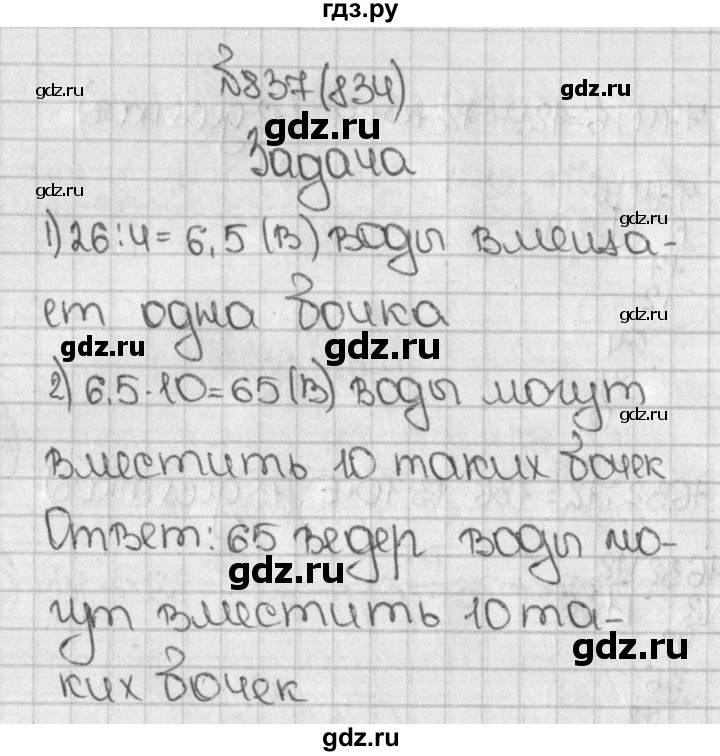 гдз.ру
№837(834)
gdz.ru
gdz.ru
gdz.ru
Задача
gdz.ru
gdz.ru
1) 26:4=6,5 (В) воды вмеща-
ет одна бочка
gdz.ru
gdz.ru
gdz.ru
2) 6,5·10=65(В) воды могут
gdz.ru
вместить 10 таких бочек
Ответ: 65 ведер воды мо-
gdz.ru
гут вместить 10 та-
gdz.ru
ких бочек
gdz.ru